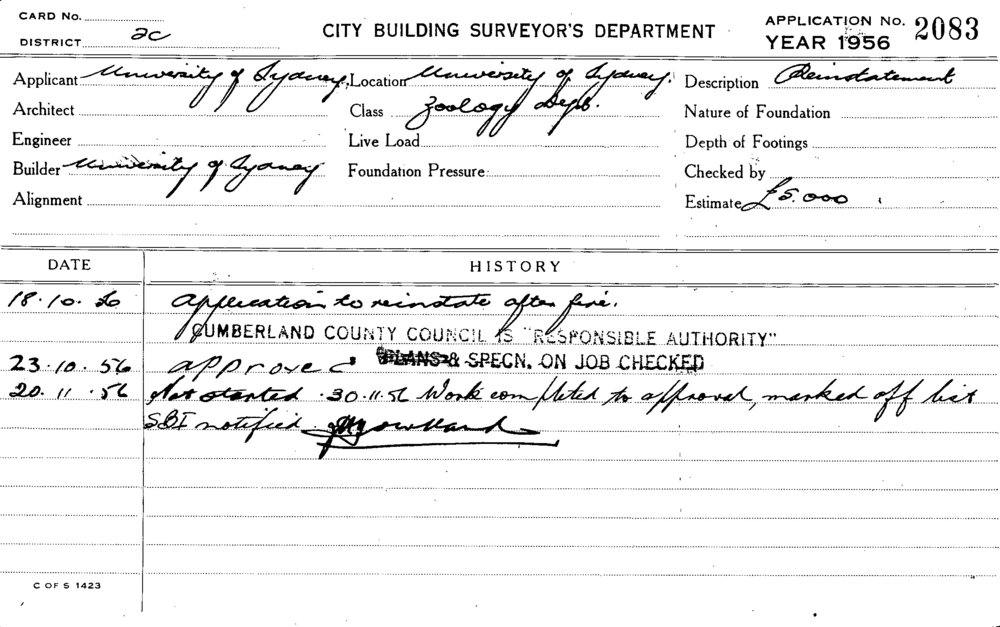 CARD No.
DISTRICT 2C
CITY BUILDING SURVEYOR'S DEPARTMENT
APPLICATION No. 2083
YEAR 1956
Applicant University of Sydney. Location University of Sydney. Description Reinstatement
Architect Class Zoology Dept. Nature of Foundation
Engineer Live Load Depth of Footings
Builder University of Sydney Foundation Pressure Checked by
Alignment Estimate £5.000
DATE HISTORY
18.10.56 Application to reinstate after fire.
CUMBERLAND COUNTY COUNCIL IS "RESPONSIBLE AUTHORITY"
23.10.56 approved PLANS & SPECN. ON JOB CHECKED
20.11.56 Not started 30.11.56 Work completed to approval, marked off list
SBI notified
C OF S 1423